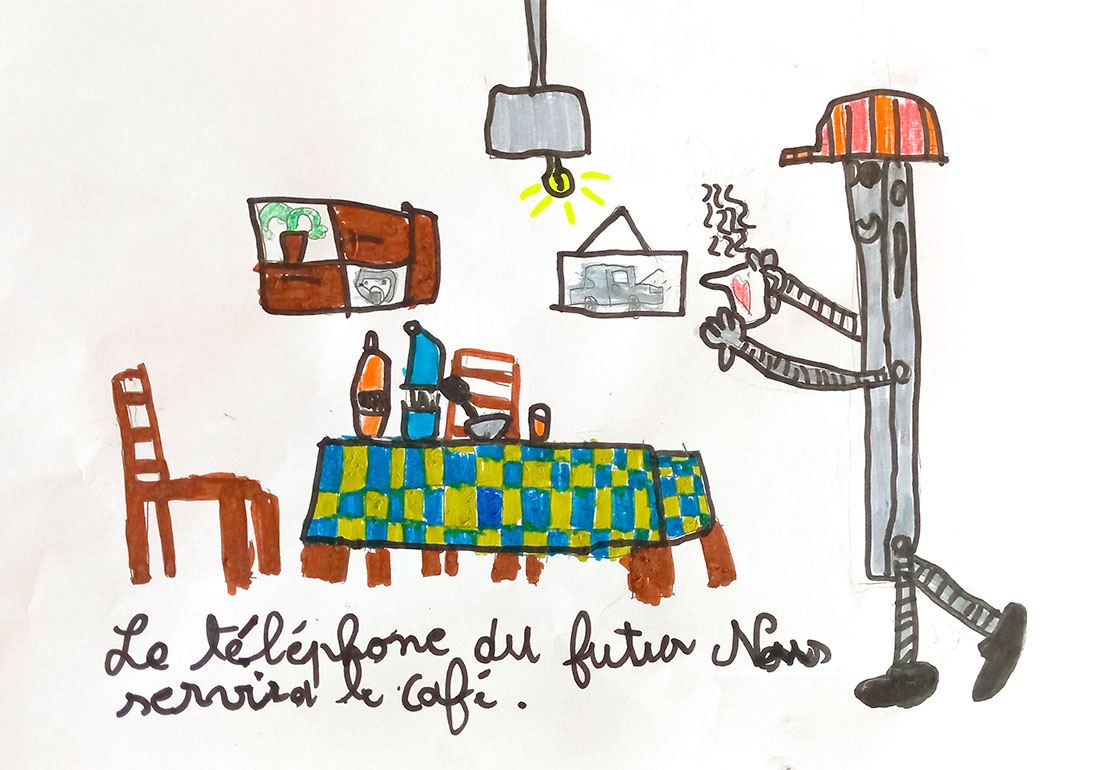 Le téléphone du futur Nous
servira le café.